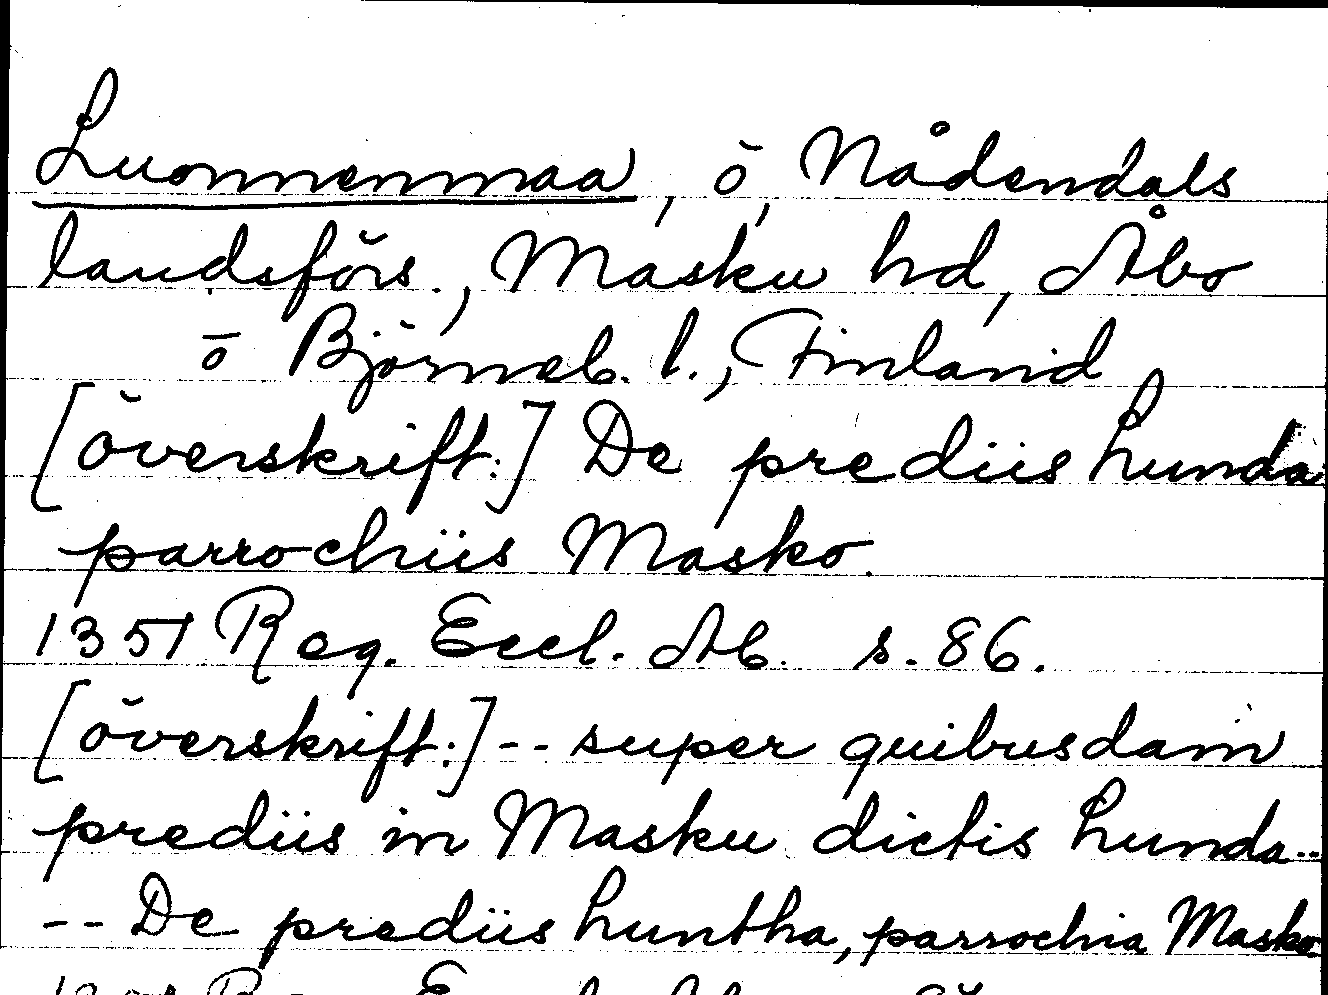 Luonnenmaa, ö, Nådendals
landsförs., Masku hd, Åbo
o Björneb. l., Finland
[överskrift:] De prediis hunda
parrochiis Masko.
1351 Reg. Eccl. Ab. s. 86.
[överskrift:] -- super quibusdam
prediis in Masku dictis hunda..
-- De prediis huntha, parrochia Masko